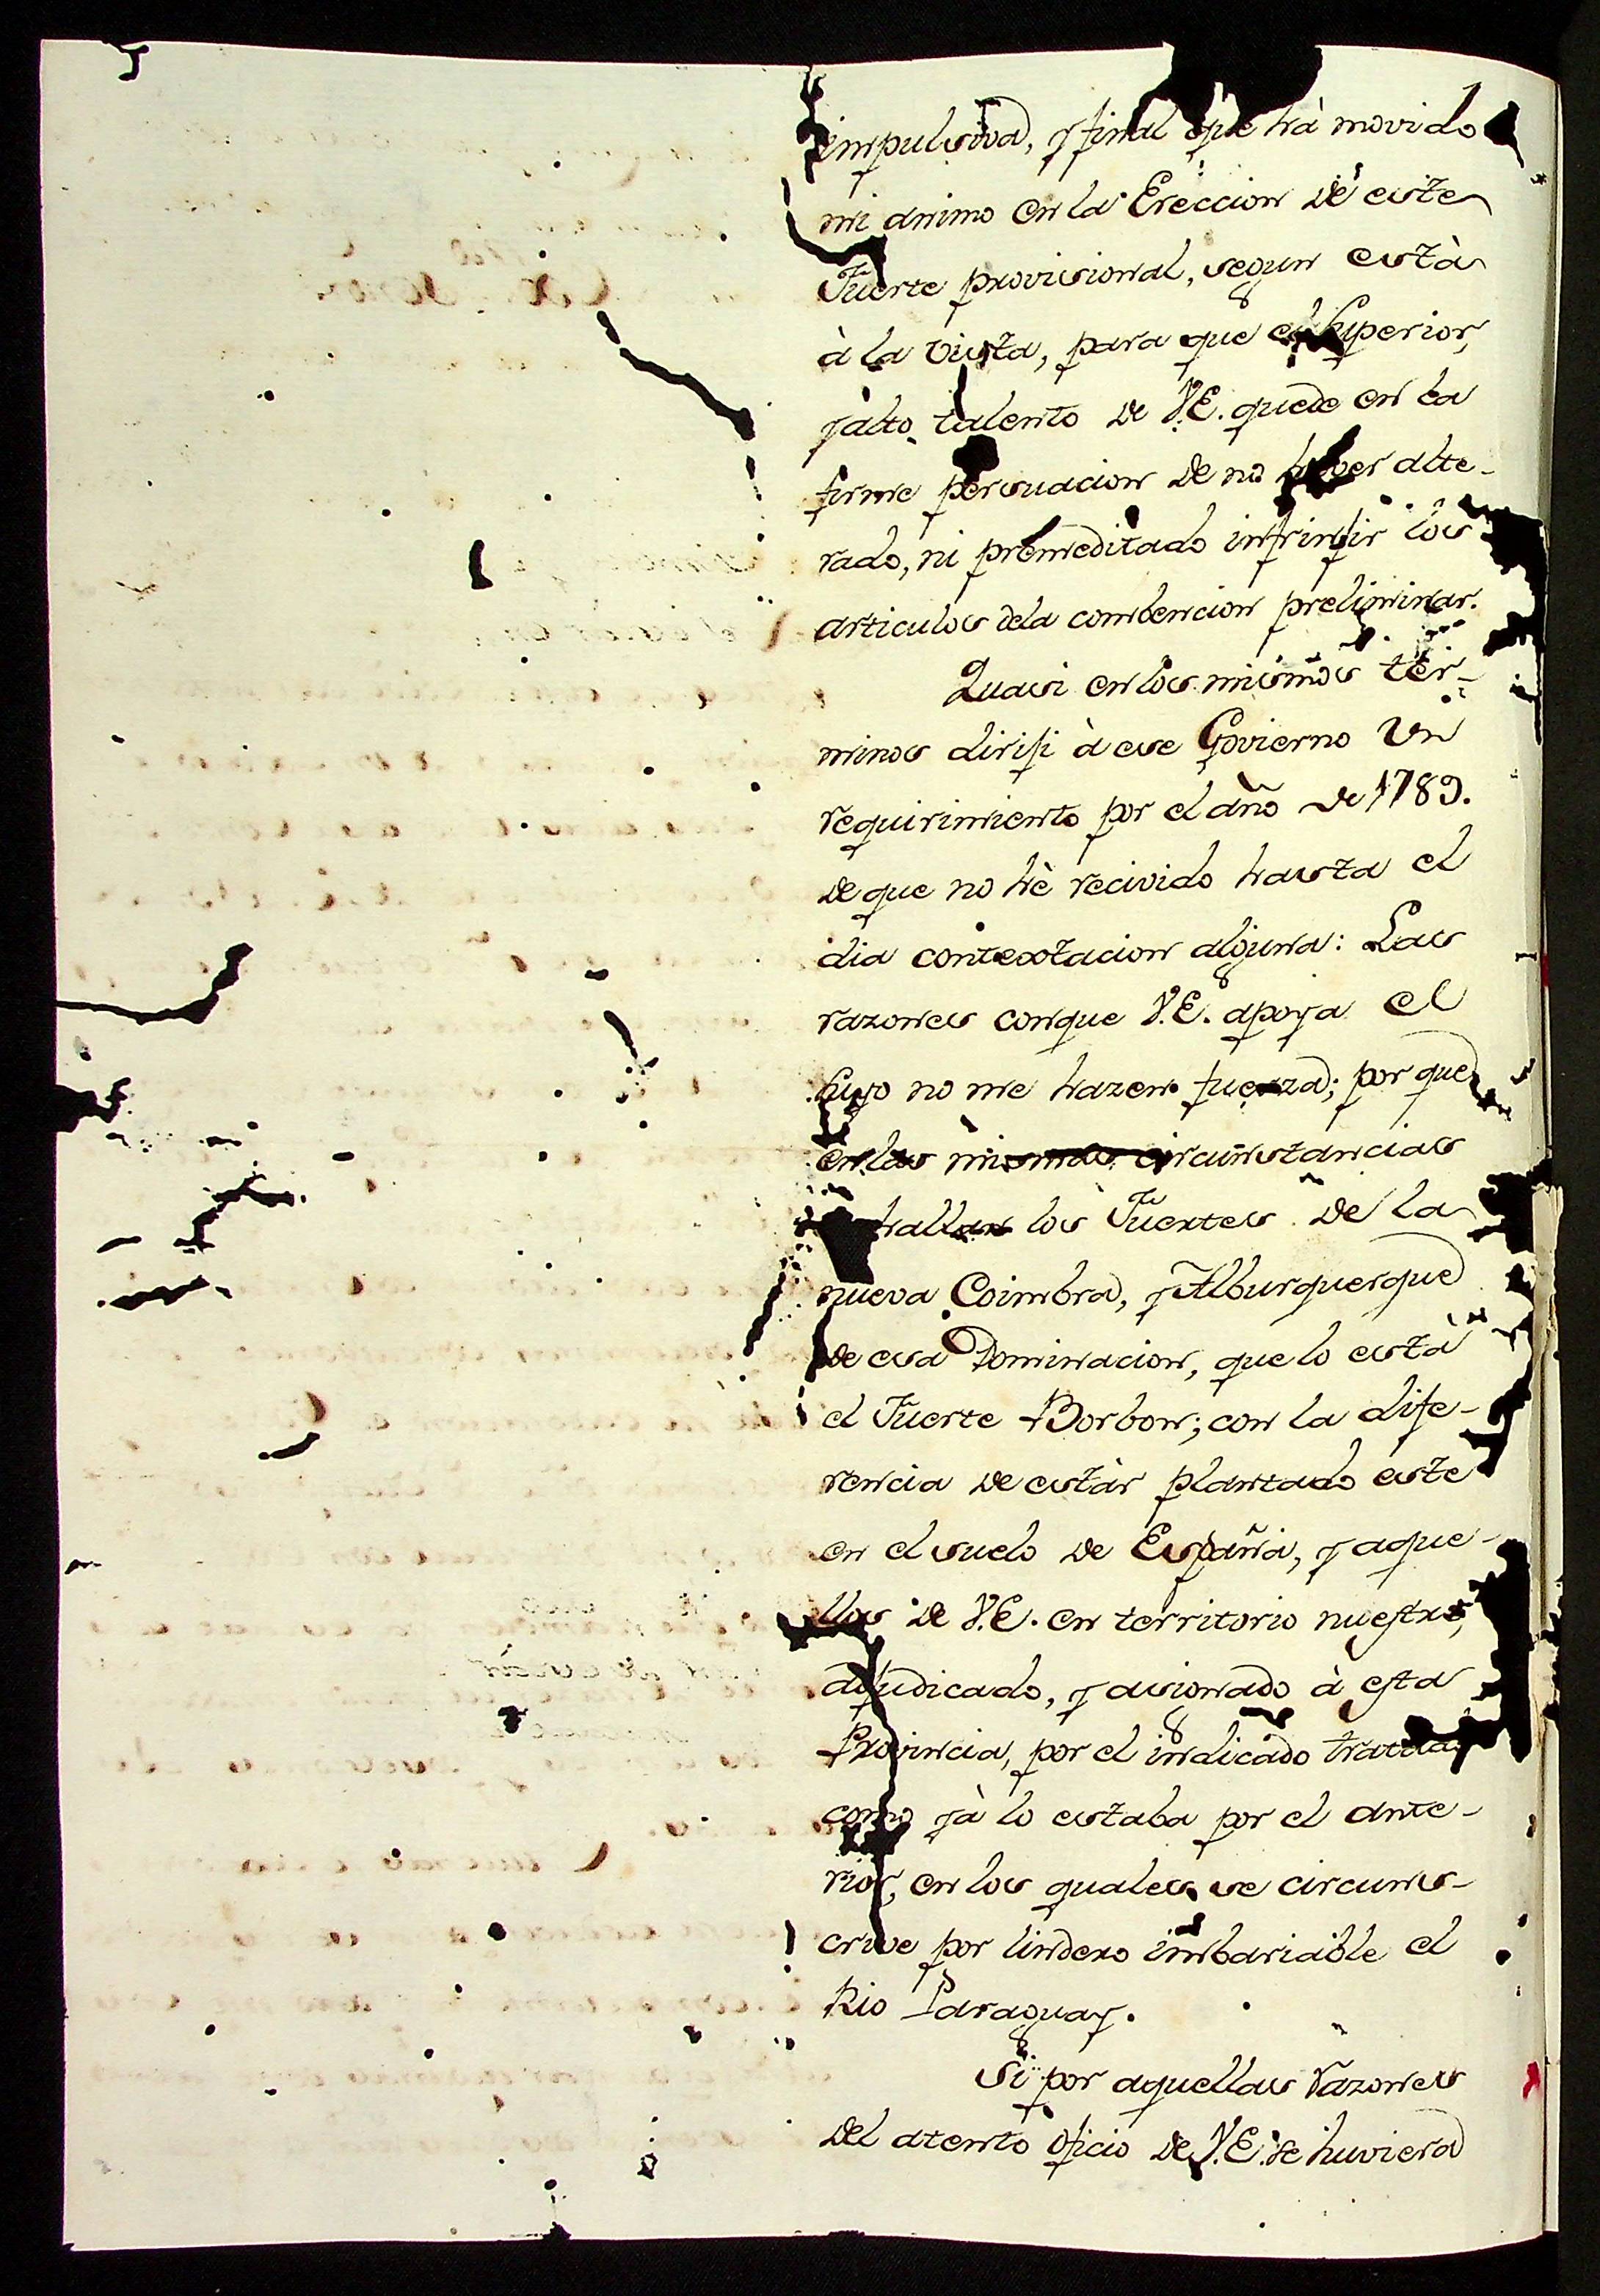 impulsiva, y final que hà movido
mi animo en la Ereccion de este
Fuerte provisional, segun està
à la vista, para que el Superior,
y alto talento de V.E. quede en la
firme persuacion de no haver alte-
rado, ni premeditado infrinjir los
articulos dela combencion preliminar.
Quasi en los mismos ter-
minos dirijì à ese Govierno un
requirimiento por el año de 1789.
de que no hè recivido hasta el
dia contextacion alguna: Las
razones conque V.E. apoya el
suyo no me hazen fuerza; por que
en las mismas circunstancias
hallan los Fuertes de la
nueva Coimbra, y Alburquerque
de esa Dominacion, que lo està
el Fuerte Borbon; con la dife-
rencia de estàr plantado este
en el suelo de España, y aque-
llos de V.E. en territorio nuestro,
adjudicado, y asignado à esta
Provincia, por el indicado tratado
como yà lo estaba por el ante-
rior, en los quales se circuns-
crive por lindero imbariable el
Rio Paraguay.
Si por aquellas razones
del atento oficio de V.E. se huviera